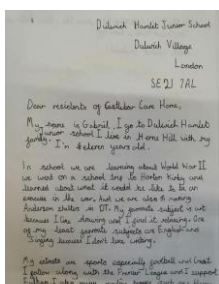 Dulwich Hamlet Junior School
Dulwich Village
London
SE21 7AL
Dear residents of Castlebar Care Home,
My name is Gabriel, I go to Dulwich Hamlet
Junior school I live in Herne Hill with my
family. I'm eleven years old.
In school we are learning about World War II
we went on a school trip to and
learned about what it would be like to be an
evacuee in the war, And we are also making
Anderson shelters in DT. My favourite subject is art
because I like drawing and I find it relaxing. One
of my least favourite subjects are English and
Singing because I don't love writing.
My are sports especially football and
I follow along with the Premier League and I support